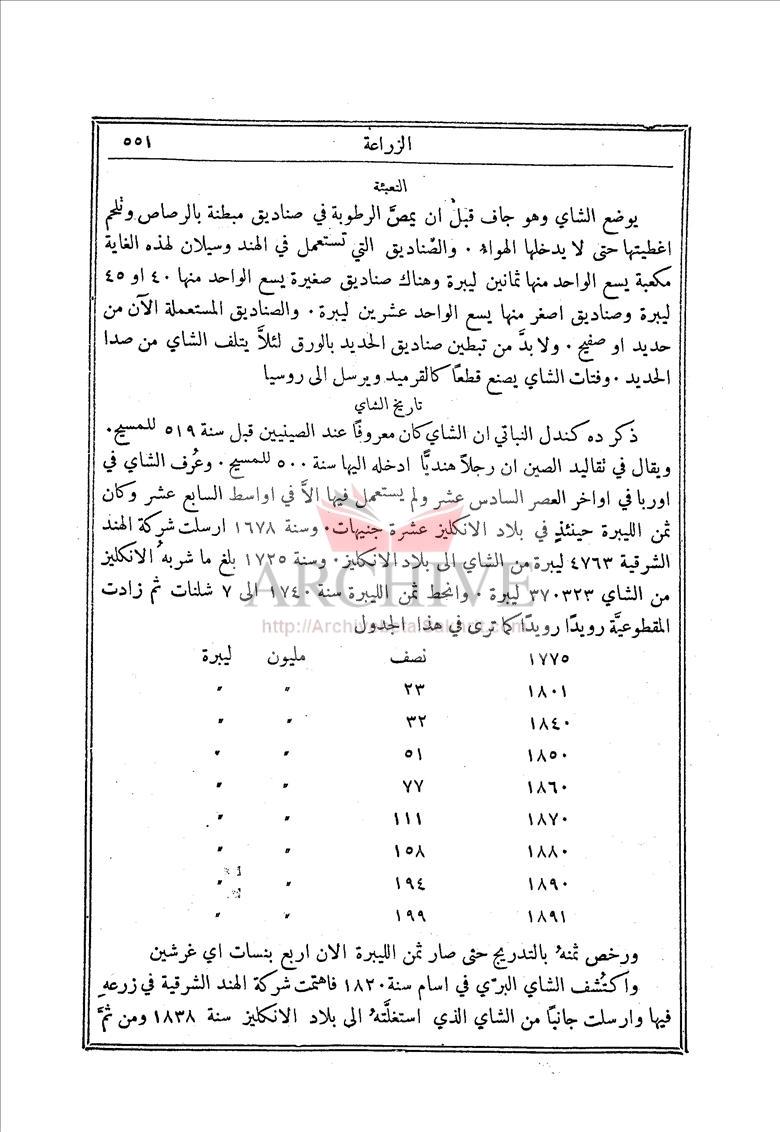 الزراعة ٥٥١
التعبئة
يوضع الشاي وهو جاف قبل ان يمصَّ الرطوبة في صناديق مبطنة بالرصاص وتلحم
اغطيتها حتى لا يدخلها الهواء ٠ والصناديق التي تستعمل في الهند وسيلان لهذه الغاية
مكعبة يسع الواحد منها ثمانين ليبرة وهناك صناديق صغيرة يسع الواحد منها ٤٠ او ٤٥
ليبرة وصناديق اصغر منها يسع الواحد عشرين ليبرة٠ والصناديق المستعملة الآن من
حديد او صفيح٠ ولا بدَّ من تبطين صناديق الحديد بالورق لئلاَّ يتلف الشاي من صدا
الحديد ٠وفتات الشاي يصنع قطعًا كالقرميد ويرسل الى روسيا
تاريخ الشاي
ذكر ده كندل النباتي ان الشاي كان معروفًا عند الصينيين قبل سنة ٥١٩ للمسيح٠
ويقال في نقاليد الصين ان رجلاً هنديًّا ادخله اليها سنة ٥٠٠ للمسيح٠ وعُرف الشاي في
اوربا في اواخر العصر السادس عشر ولم يستعمل فيها الاَّ في اواسط السابع عشر وكان
ثمن الليبرة حينئذٍ في بلاد الانكليز عشرة جنيهات٠ وسنة ١٦٧٨ ارسلت شركة الهند
الشرقية ٤٧٦٣ ليبرة من الشاي الى بلاد الانكليز٠ وسنة ١٧٢٥ بلغ ما شربهُ الانكليز
من الشاي ٣٧٠٣٢٣ ليبرة ٠ وانحط ثمن الليبرة سنة ١٧٤٠ الى ٧ شلنات ثم زادت
المقطوعيَّة رويدًا رويدًا كما ترى في هذا الجدول
ARCHIVE
١٧٧٥ نصف مليون ليبرة
١٨٠١ ٢٣ " "
١٨٤٠ ٣٢ " "
١٨٥٠ ٥١ " "
١٨٦٠ ٧٧ " "
١٨٧٠ ١١١ " "
١٨٨٠ ١٥٨ " "
١٨٩٠ ١٩٤ " "
١٨٩١ ١٩٩ " "
ورخص ثمنهُ بالتدريج حتى صار ثمن الليبرة الان اربع بنسات اي غرشين
واكتُشف الشاي البرّي في اسام سنة ١٨٢٠ فاهتمت شركة الهند الشرقية في زرعهِ
فيها وارسلت جانبًا من الشاي الذي استغلَّتهُ الى بلاد الانكليز سنة ١٨٣٨ ومن ثمَّ